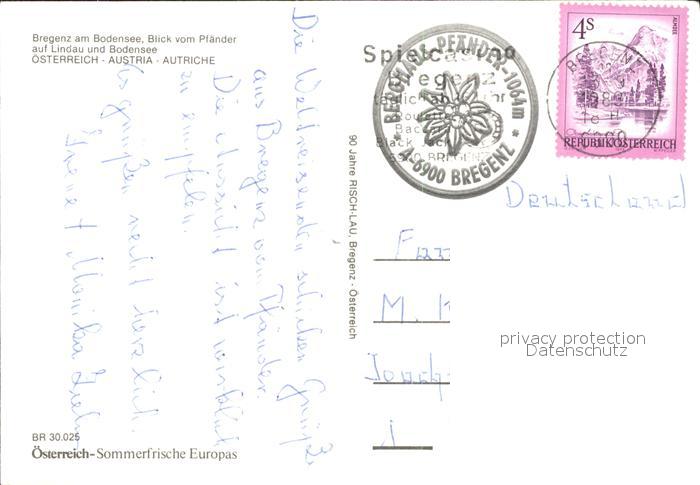 Bregenz am Bodensee, Blick vom Pfänder
auf Lindau und Bodensee
ÖSTERREICH - AUSTRIA - AUTRICHE
Die Weltreisenden schicken Grüße
aus Bregenz vom Pfänder.
Die Aussicht ist wirklich
zu empfehlen.
Es grüßen recht herzlich
Irene + Monika
BR 30.025
Österreich-Sommerfrische Europas
90 Jahre RISCH-LAU, Bregenz - Österreich
Spielcasino
Bregenz
BERGHAUS PFÄNDER-1064m
* A-6900 BREGENZ *
4s
ALMSEE
REPUBLIK ÖSTERREICH
Deutschland
Fam
M. K
privacy protection
Datenschutz